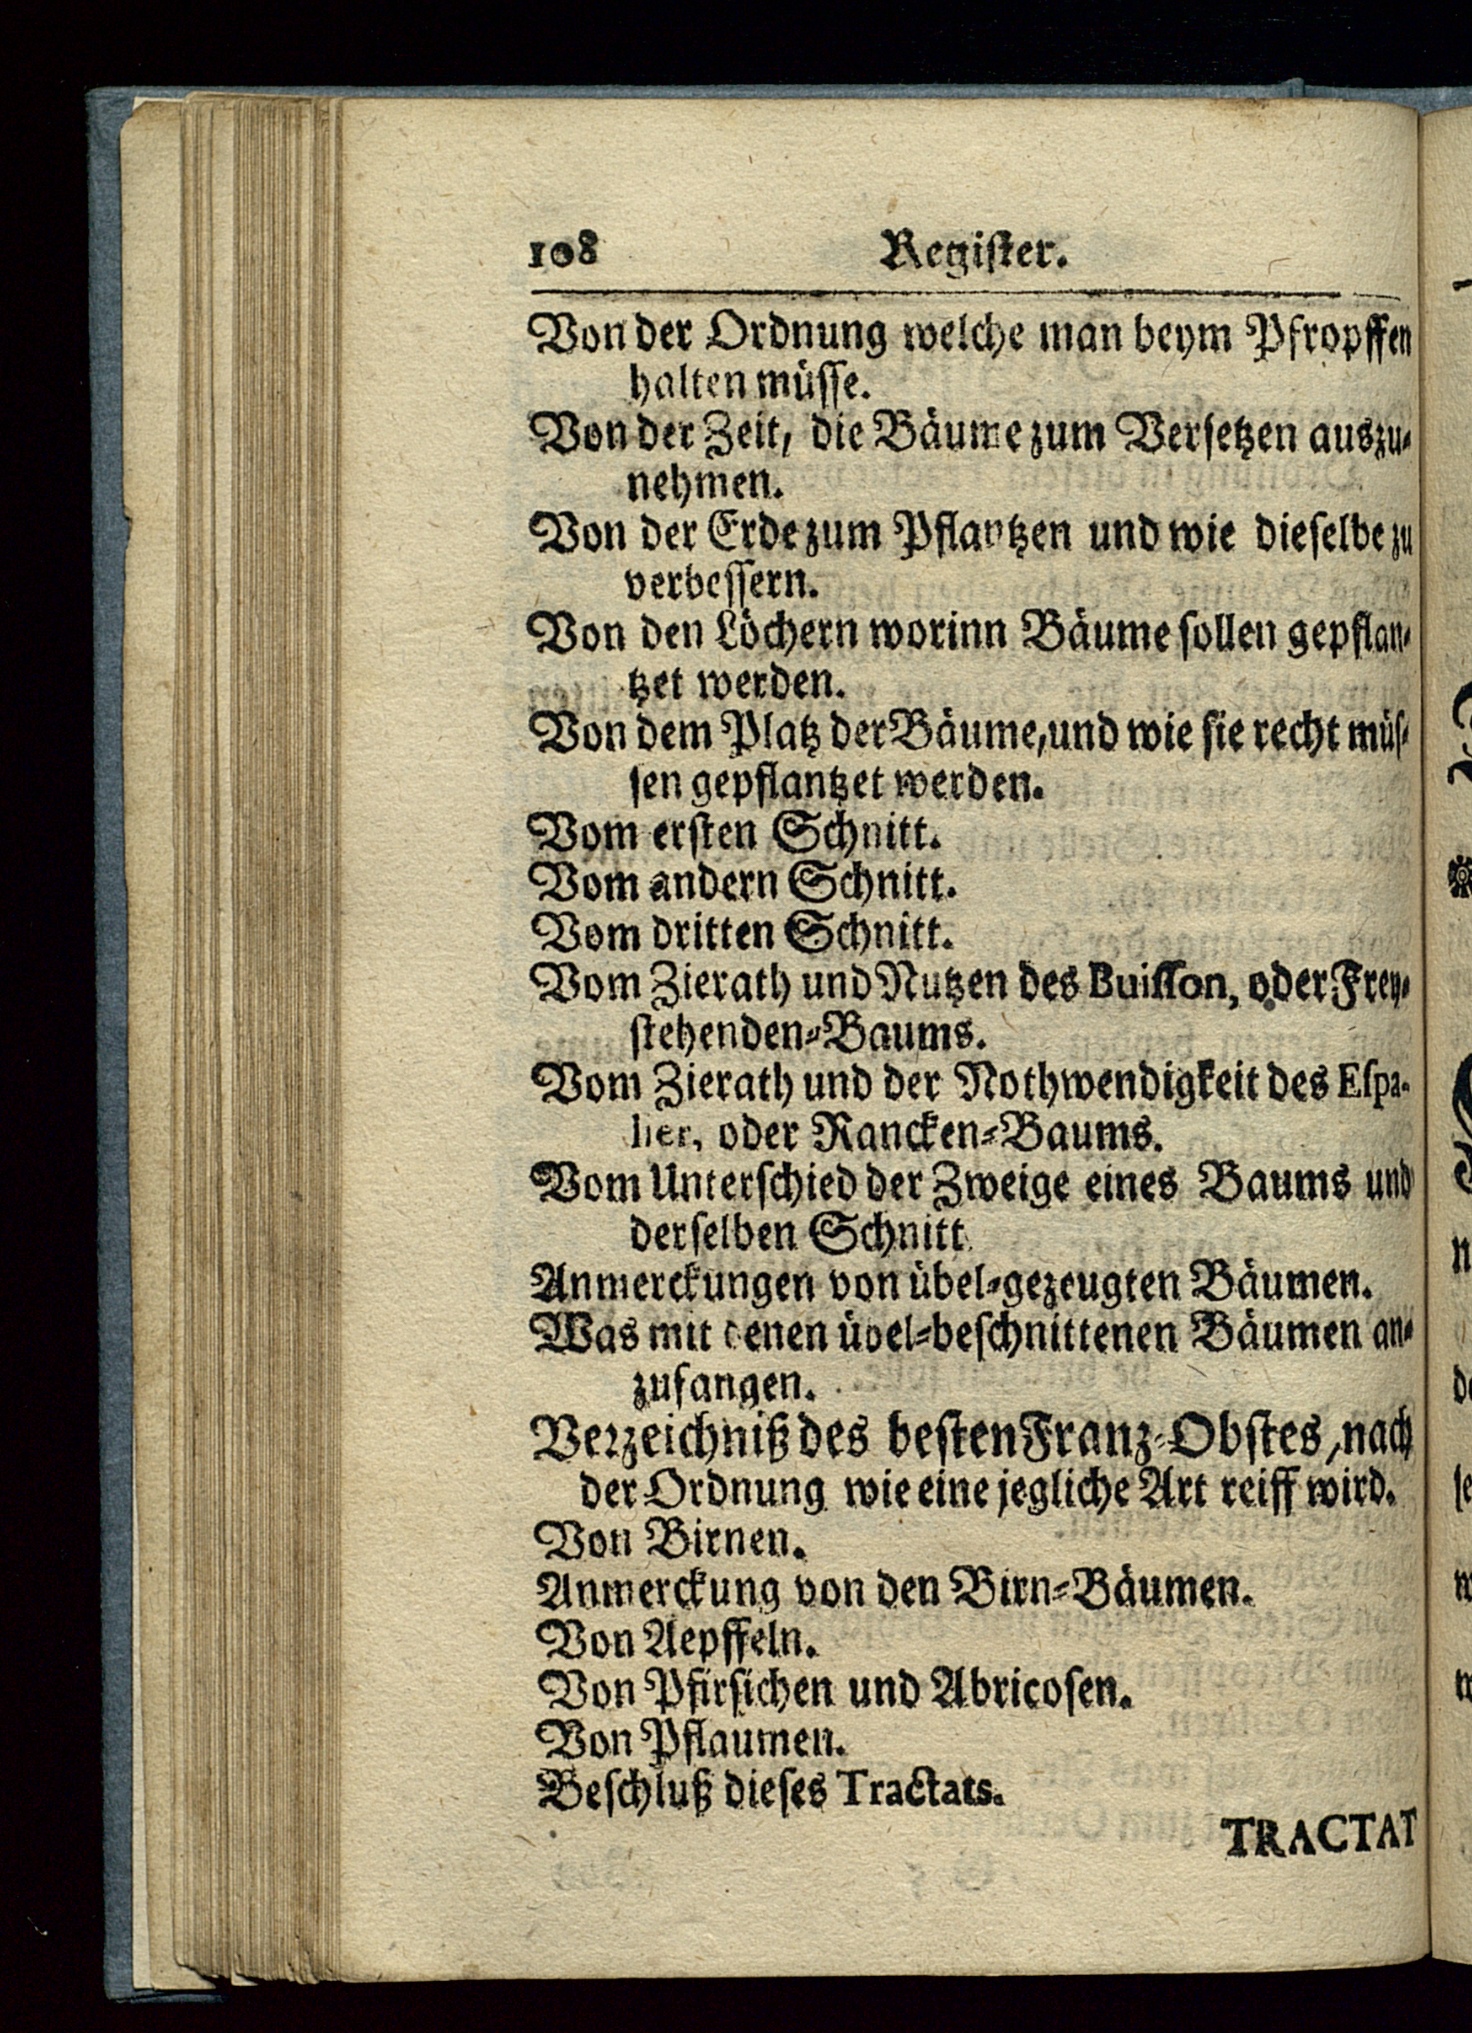 108 Register.
Von der Ordnung welche man beym Pfropffen
halten müsse.
Von der Zeit, die Bäume zum Versetzen auszu-
nehmen.
Von der Erde zum Pflantzen und wie dieselbe zu
verbessern.
Von den Löchern worinn Bäume sollen gepflan-
tzet werden.
Von dem Platz der Bäume, und wie sie recht müs-
sen gepflantzet werden.
Vom ersten Schnitt.
Vom andern Schnitt.
Vom dritten Schnitt.
Vom Zierath und Nutzen des Buisson, oder Frey-
stehenden-Baums.
Vom Zierath und der Nothwendigkeit des Espa-
lier, oder Rancken-Baums.
Vom Unterschied der Zweige eines Baums und
derselben Schnitt.
Anmerckungen von übel-gezeugten Bäumen.
Was mit denen übel-beschnittenen Bäumen an-
zufangen.
Verzeichniß des besten Franz-Obstes, nach
der Ordnung wie eine jegliche Art reiff wird.
Von Birnen.
Anmerckung von den Birn-Bäumen.
Von Aepffeln.
Von Pfirsichen und Abricosen.
Von Pflaumen.
Beschluß dieses Tractats.
TRACTAT